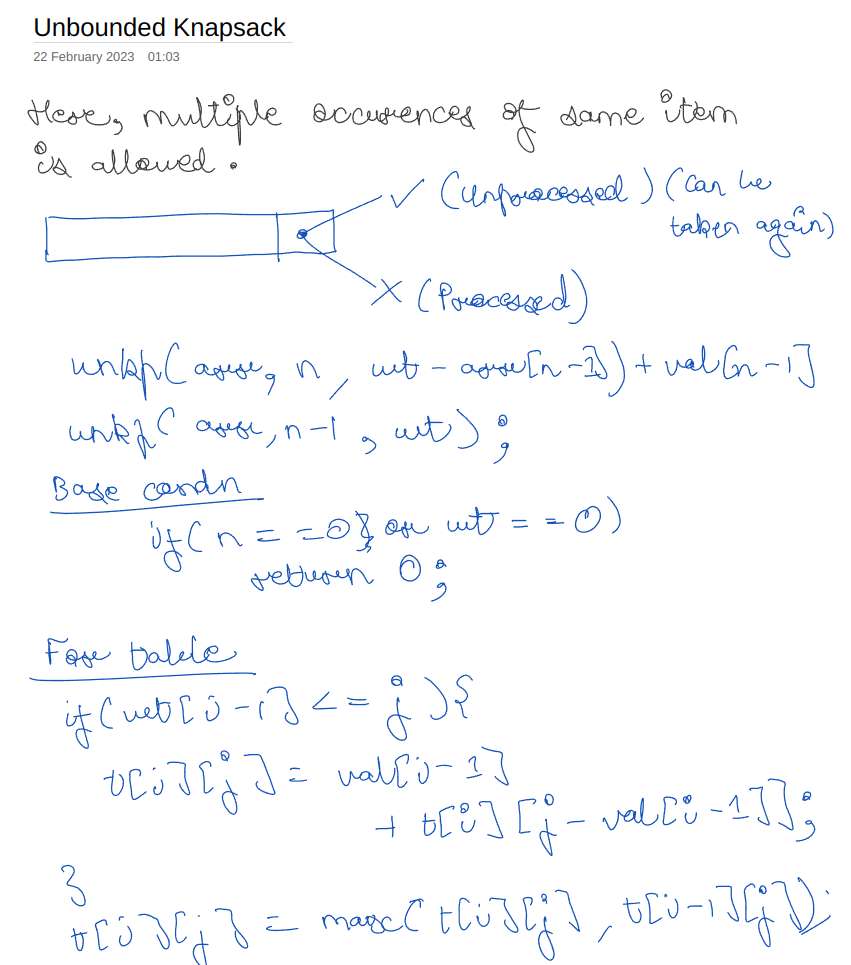 Unbounded Knapsack
22 February 2023 01:03
Here, multiple occurences of same item
is allowed.
✓ (Unprocessed) (Can be
taken again)
X (Processed)
unkp(arr, n, wt - arr[n-1]) + val[n-1]
unkp( arr, n-1, wt);
Base condn
if(n == 0} or wt == 0)
return 0;
For table
if(wt[i-1] <= j){
t[i][j] = val[i-1]
+ t[i][j - val[i-1]];
}
t[i][j] = max( t[i][j], t[i-1][j]);